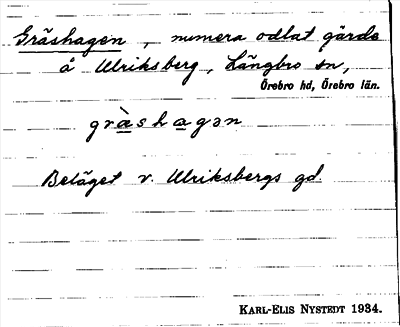 Gräshagen, numera odlat gärde
å Ulriksberg, Längbro sn,
Örebro hd, Örebro län.
gràshagən
Beläget v. Ulriksbergs gd.
KARL-ELIS NYSTEDT 1934.